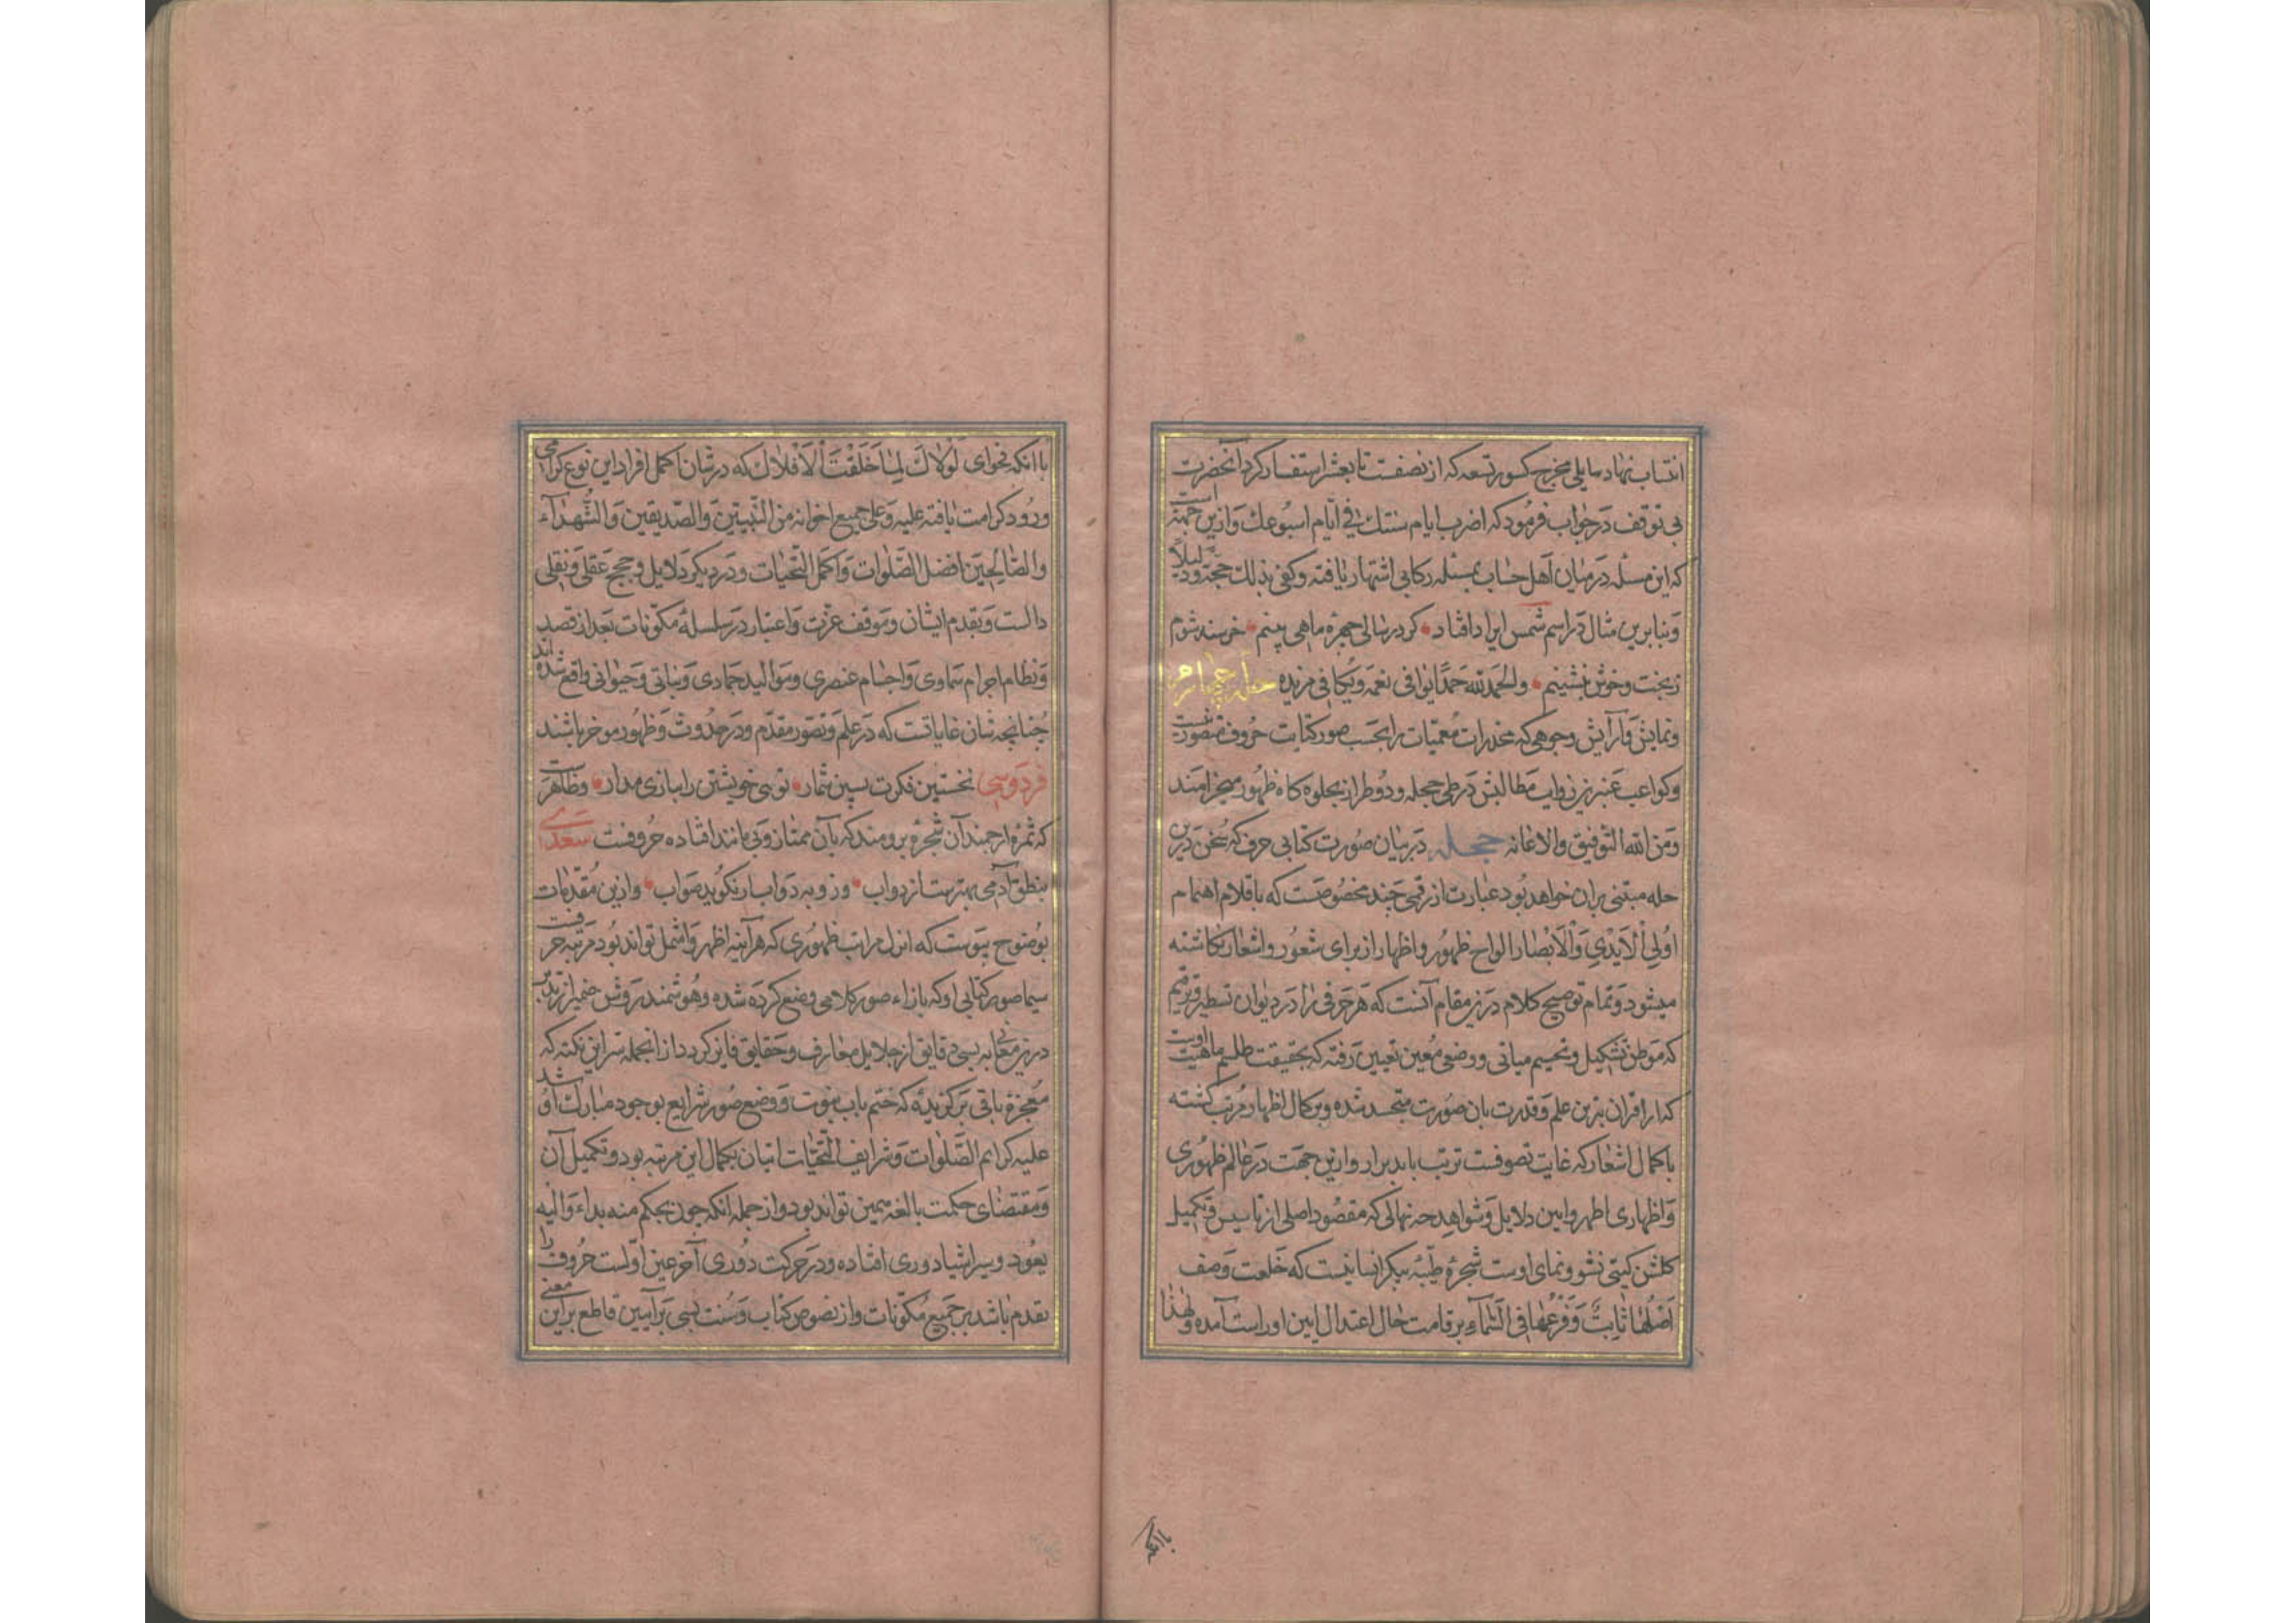 انتساب نهاد سایلی مخرج کسور تسعه که از نصفست تا بعشر استفسار کرد آنحضرت
بی توقف در جواب فرمود که اضرب ایام سنتك فی ایام اسبوعك وازین جهته است
که این مسئله درمیان اهل حساب بمسئله رکابی اشتهار یافته وکفی بذلك حجة ودلیلاً
وبنابرین مثال در اسم شمس ایراد افتاد کر درسالی چهره ماهی بینم خرسند شوم
زبخت وخوش بنشینم والحمدلله حمدًا یوافی نعمه ویکافی مزیده حله چهارم
ونمایش وآرایش وجوهی که مخدرات معمیات را بحسب صور کتابت حروف متصورست
وکواعب عنبرین ذوایب مطالبش در طی حجله ودو طراز بجلوه کاه ظهور میخرامند
ومن الله التوفیق والاعانه حجله در بیان صورت کتابی حرف که سخن درین
حله مبتنی بران خواهد بود عبارت از رقمی چند مخصوصست که باقلام اهتمام
اولِی الْاَیْدِی وَالْاَبْصَار الواح ظهور واظهار از برای شعور واشعار نکاشته
میشود وتمام توضیح کلام درین مقام آنست که هر حرفی را در دیوان تسطیر وترقیم
که موطن تشکیل وتجسیم مبانی ووضعی معین تعیین رفته که بحقیقت طلسم ماهیت اوست
که از اقران بترین علم وقدرت بان صورت متجسد شده وبرکمال اظهار مرتب کشته
باکمال اشعار که غایت تصوفست ترتب یابد برار وازین جهت در عالم ظهوری
واظهاری اظهر وابین دلایل وشواهد چه نهالی که مقصود اصلی از تاسیس وتکمیل
کلشن کیتی نشو ونمای اوست شجرهٔ طیبه پیکر انسانیست که خلعت وصف
اَصْلُهَا ثَابِتٌ وَفَرْعُهَا فِی السَّمَاءِ بر قامت حال اعتدال ایین او راست آمده ولهذا
باانکه
باانکه فحوای لَوْلَاكَ لَمَا خَلَقْتُ الْاَفْلَاكَ که در شان اکمل افراد این نوع کرامی
ورود کرامت یافته علیه وعلی جمیع اخوانه من النبیین والصدیقین والشهداء
والصالحین افضل الصلوات واکمل التحیات ودر دیکر دلایل وحجج عقلی ونقلی
دالست وبتقدم ایشان وموقف عزت واعتبار در سلسلهٔ مکونات بعد از قصد
ونظام اجرام سماوی واجسام عنصری وموالید جمادی ونباتی وحیوانی واقع شده اند
چنانچه شان غایاتست که در علم وتصور مقدم ودر حدوث وظهور موخر باشند
فردوسی نخستین فکرت پسین شمار توئی خویشتن را ببازی مدار وظاهرست
که ثمرهٔ ارجمند آن شجرهٔ برومند که بآن ممتاز وبی مانند افتاده حروفست سعدی
بنطق آدمی بهترست از دواب وزو به دواب ار نکوید صواب وازین مقدمات
بوضوح پیوست که انزل مراتب ظهوری که هرآینه اظهر واشمل تواند بود مرتبه حرفست
سیما صور کتابی او که بازاء صور کلامی وضع کرده شده وهوشمند روشن ضمیر از تدبر
درین معانی به بسی دقایق از جلایل معارف وحقایق فایز کردد از انجمله سر این نکته که
معجزهٔ باقی برکزیدهٔ که ختم باب نبوت ووضع صور شرایع بوجود مبارك او شد
علیه کرایم الصلوات وشرایف التحیات اتیان بکمال این مرتبه بود وتکمیل آن
ومقتضای حکمت بالغه همین تواند بود واز جمله انکه چون بحکم منه بداء والیه
یعود وسیر اشیا دوری افتاده ودر حرکت دوری آخر عین اولست حروف را
تقدم باشد بر جمیع مکونات واز نصوص کتاب وسنت بسی براهین قاطع بر این معنی